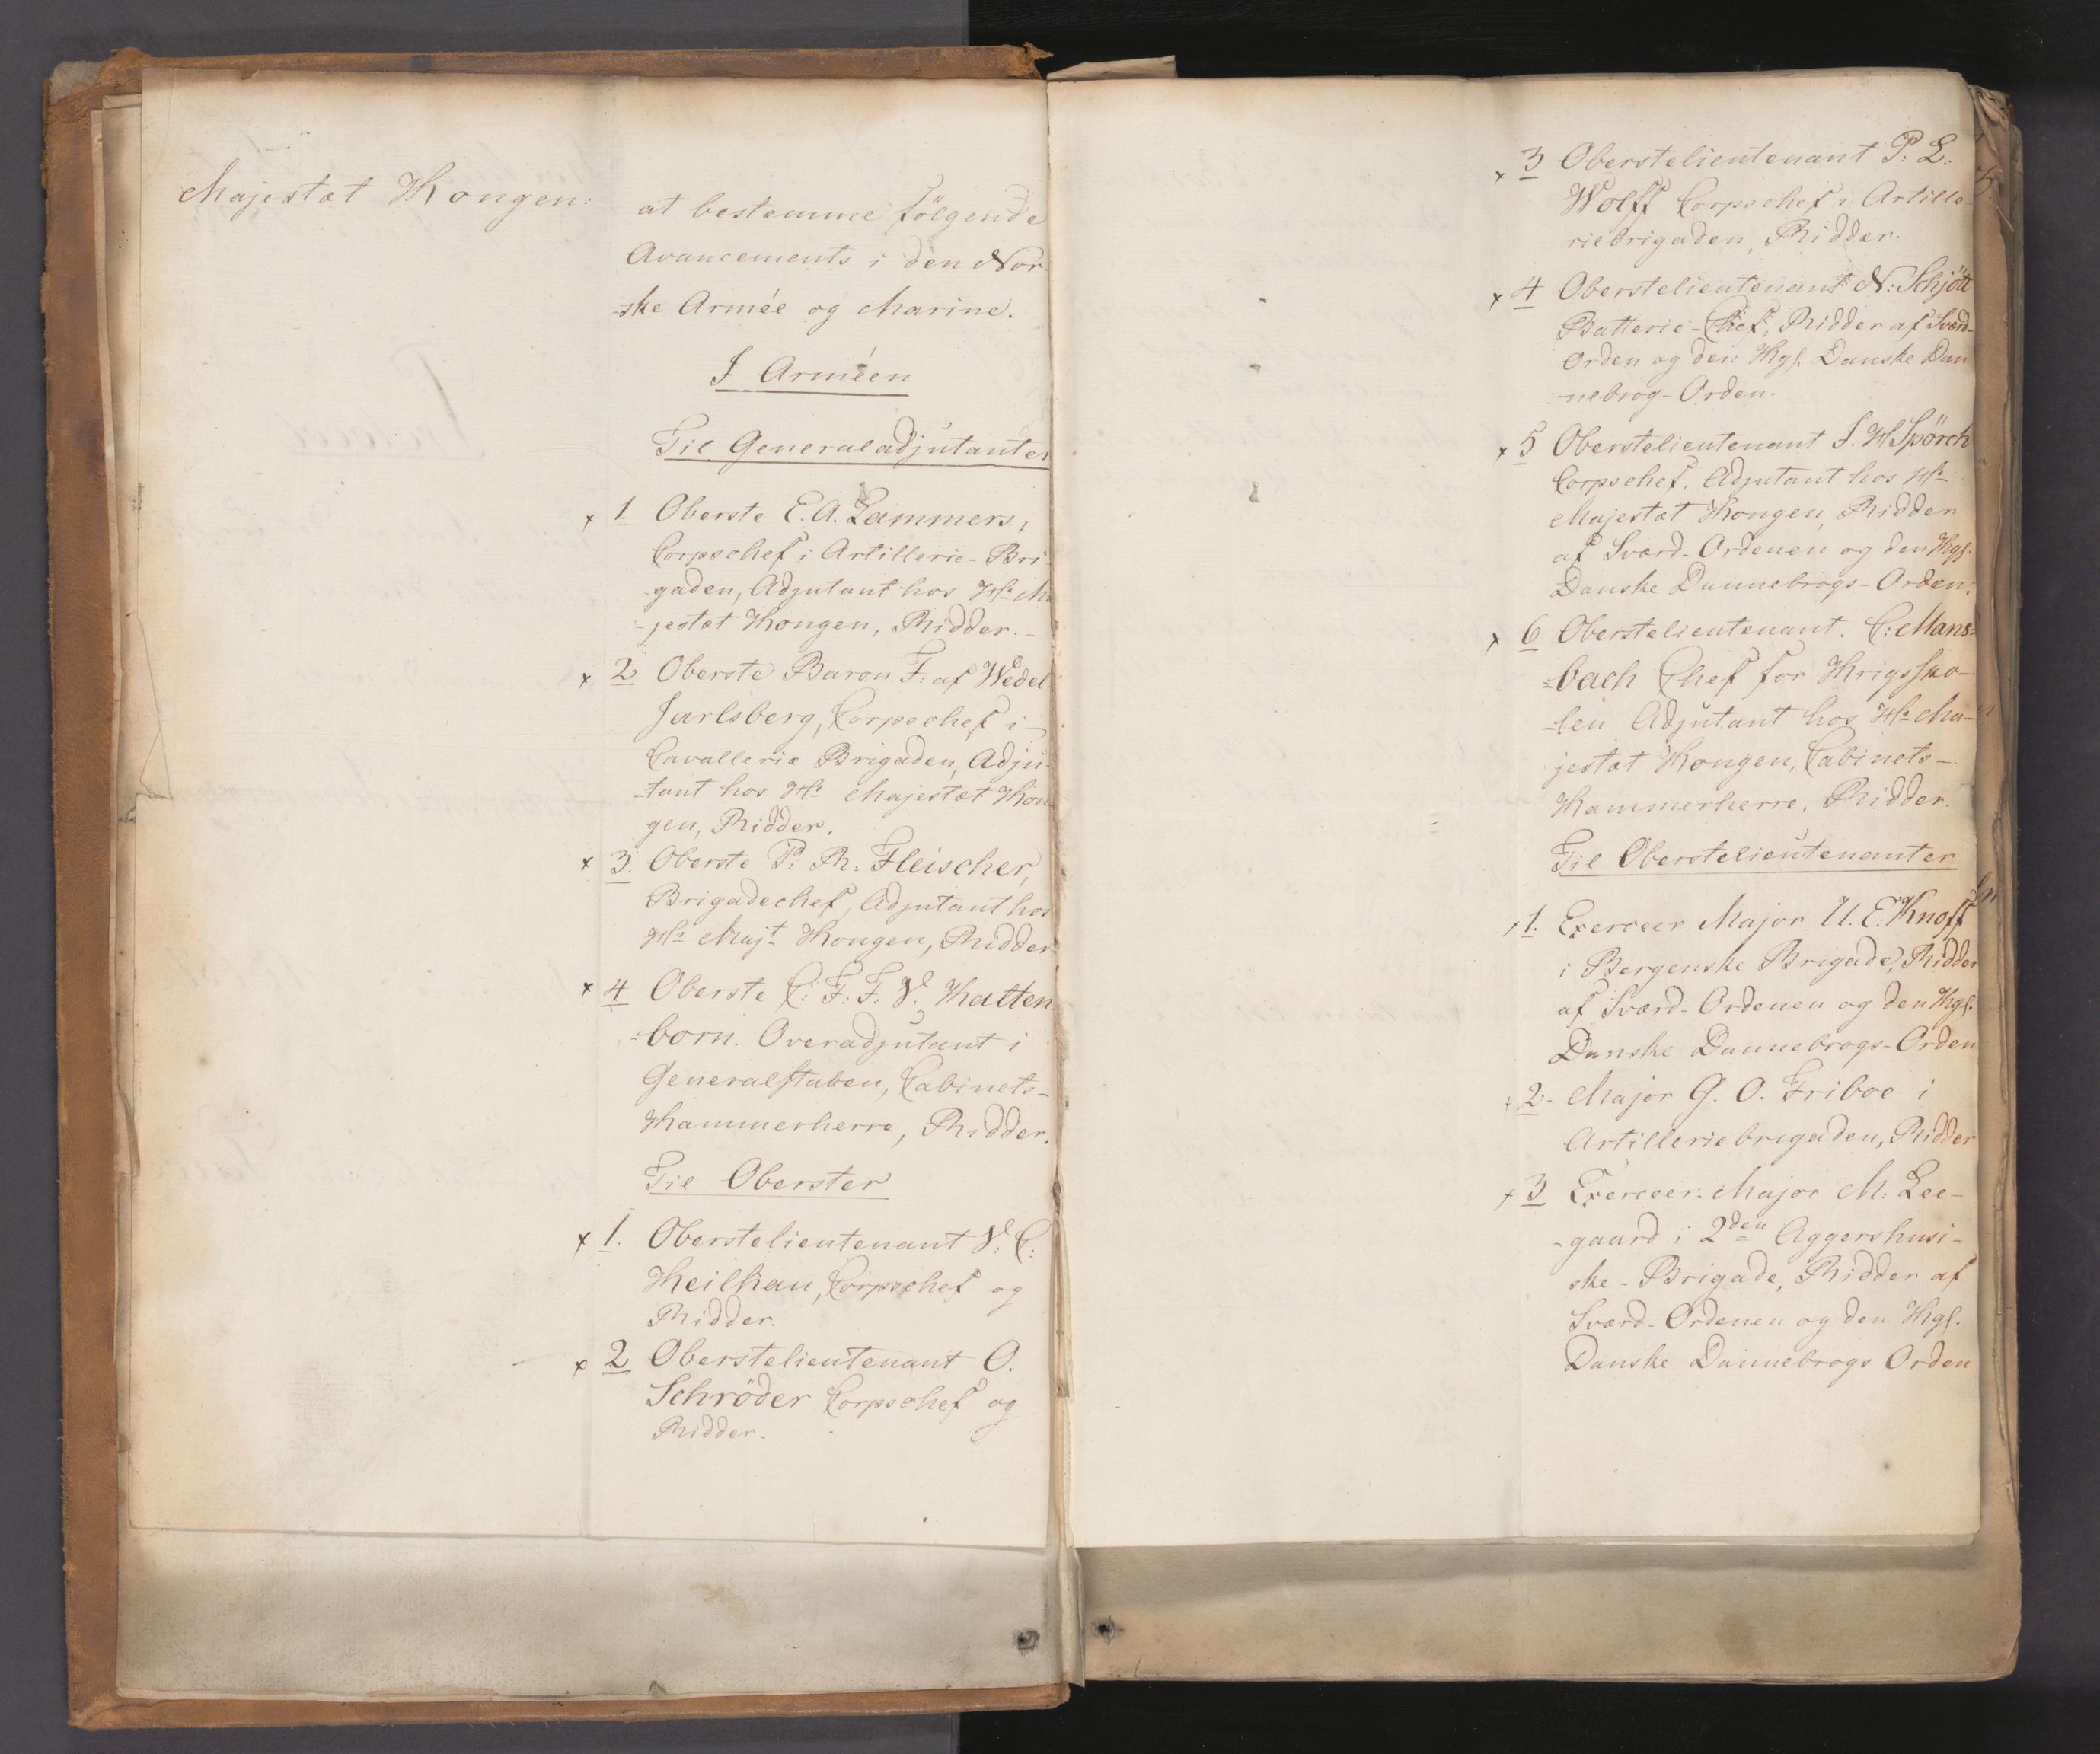 Majestæt Kongen:
at bestemme følgende
Avancements i den Nor-
-ske Armée og Marine.
I Arméen
Til Generaladjutanter
x 1. Oberste E. A. Lammers,
Corpschef i Artillerie-Bri-
gaden, Adjutant hos Hs Ma
-jestæt Kongen, Ridder. -
x 2 Oberste Baron F: af Wedel
Jarlsberg, Corpschef i
Cavallerie Brigaden, Adju-
-tant hos Hs Majestæt Kon-
gen, Ridder.
x 3. Oberste P: Ph: Fleischer,
Brigadechef, Adjutant hos
Hs Majt Kongen, Ridder.
x 4 Oberste C: F: F: V. Kalten
=born. Overadjutant i
Generalstaben, Cabinets-
Kammerherre, Ridder.
Til Oberster
x 1. Oberstelieutenant V: C:
Keilhau, Corpschef og
Ridder.
x 2 Oberstelieutenant O.
Schröder Corpschef og
Ridder.
x 3 Oberstelieutenant P: L:
Wolff Corpschef i Artille-
riebrigaden, Ridder.
x 4 Oberstelieutenant N: Schjött
Batterie-Chef, Ridder af Sværd-
Orden og den Kgl. Danske Dan
-nebrog-Orden.
x 5 Oberstelieutenant J. H. Spörch
Corpschef. Adjutant hos Hs
Majestæt Kongen, Ridder
af Sværd-Ordenen og den Kgl.
Danske Dannebrogs-Orden.
x 6 Oberstelieutenant. C: Mans=
=bach Chef for Krigssko-
-len Adjutant hos Hs Ma-
jestæt Kongen, Cabinets-
Kammerherre, Ridder.
Til Oberstelieutenanter
x 1. Exerceer Major U. E. Knoff
i Bergenske Brigade, Ridder
af Sværd-Ordenen og den Kgl.
Danske Dannebrogs-Orden
x 2- Major G. O. Friboe i
Artilleriebrigaden, Ridder
x 3 Exerceer-Major M: Lee-
-gaard i 2den Aggershusi-
ske-Brigade, Ridder af
Sværd-Ordenen og den Kgl.
Danske Dannebrogs Orden